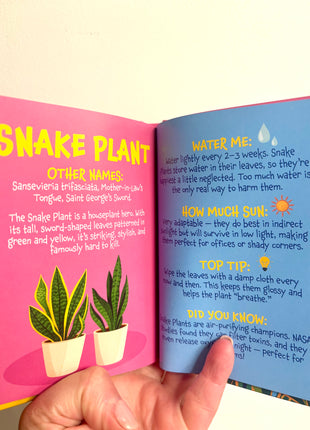 SNAKE PLANT
OTHER NAMES:
Sansevieria trifasciata, Mother-in-Law's
Tongue, Saint George's Sword.
The Snake Plant is a houseplant hero. With
its tall, sword-shaped leaves patterned in
green and yellow, it's striking, stylish, and
famously hard to kill.
WATER ME:
Water lightly every 2–3 weeks. Snake
Plants store water in their leaves, so they're
happiest a little neglected. Too much water is
the only real way to harm them.
HOW MUCH SUN:
Very adaptable – they do best in indirect
sunlight but will survive in low light, making
them perfect for offices or shady corners.
TOP TIP:
Wipe the leaves with a damp cloth every
now and then. This keeps them glossy and
helps the plant "breathe."
DID YOU KNOW:
Snake Plants are air-purifying champions. NASA
studies found they filter toxins, and they
even release night – perfect for